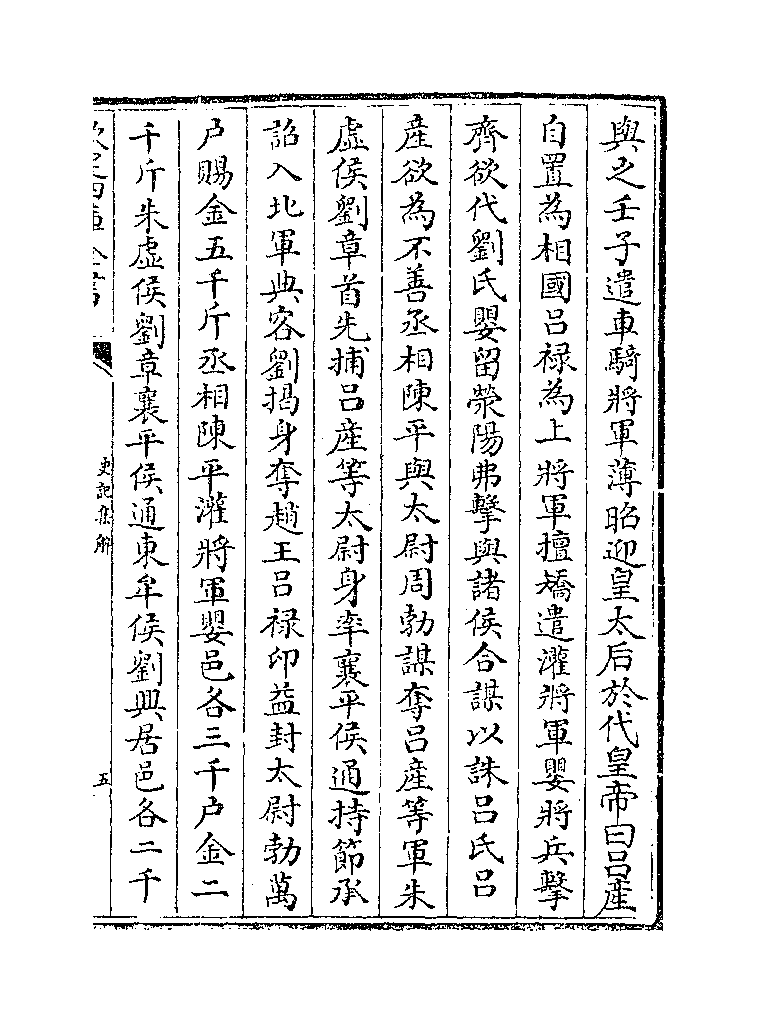 與之壬子遣車騎將軍薄昭迎皇太后於代皇帝曰吕產
自置為相國吕禄為上將軍擅矯遣灌將軍嬰將兵擊
齊欲代劉氏嬰留滎陽弗擊與諸侯合謀以誅吕氏吕
產欲為不善丞相陳平與太尉周勃謀奪吕產等軍朱
虛侯劉章首先捕吕產等太尉身率襄平侯通持節承
詔入北軍典客劉揭身奪趙王吕禄印益封太尉勃萬
户賜金五千斤丞相陳平灌將軍嬰邑各三千户金二
千斤朱虛侯劉章襄平侯通東牟侯劉興居邑各二千
欽定四庫全書
史記集解
五